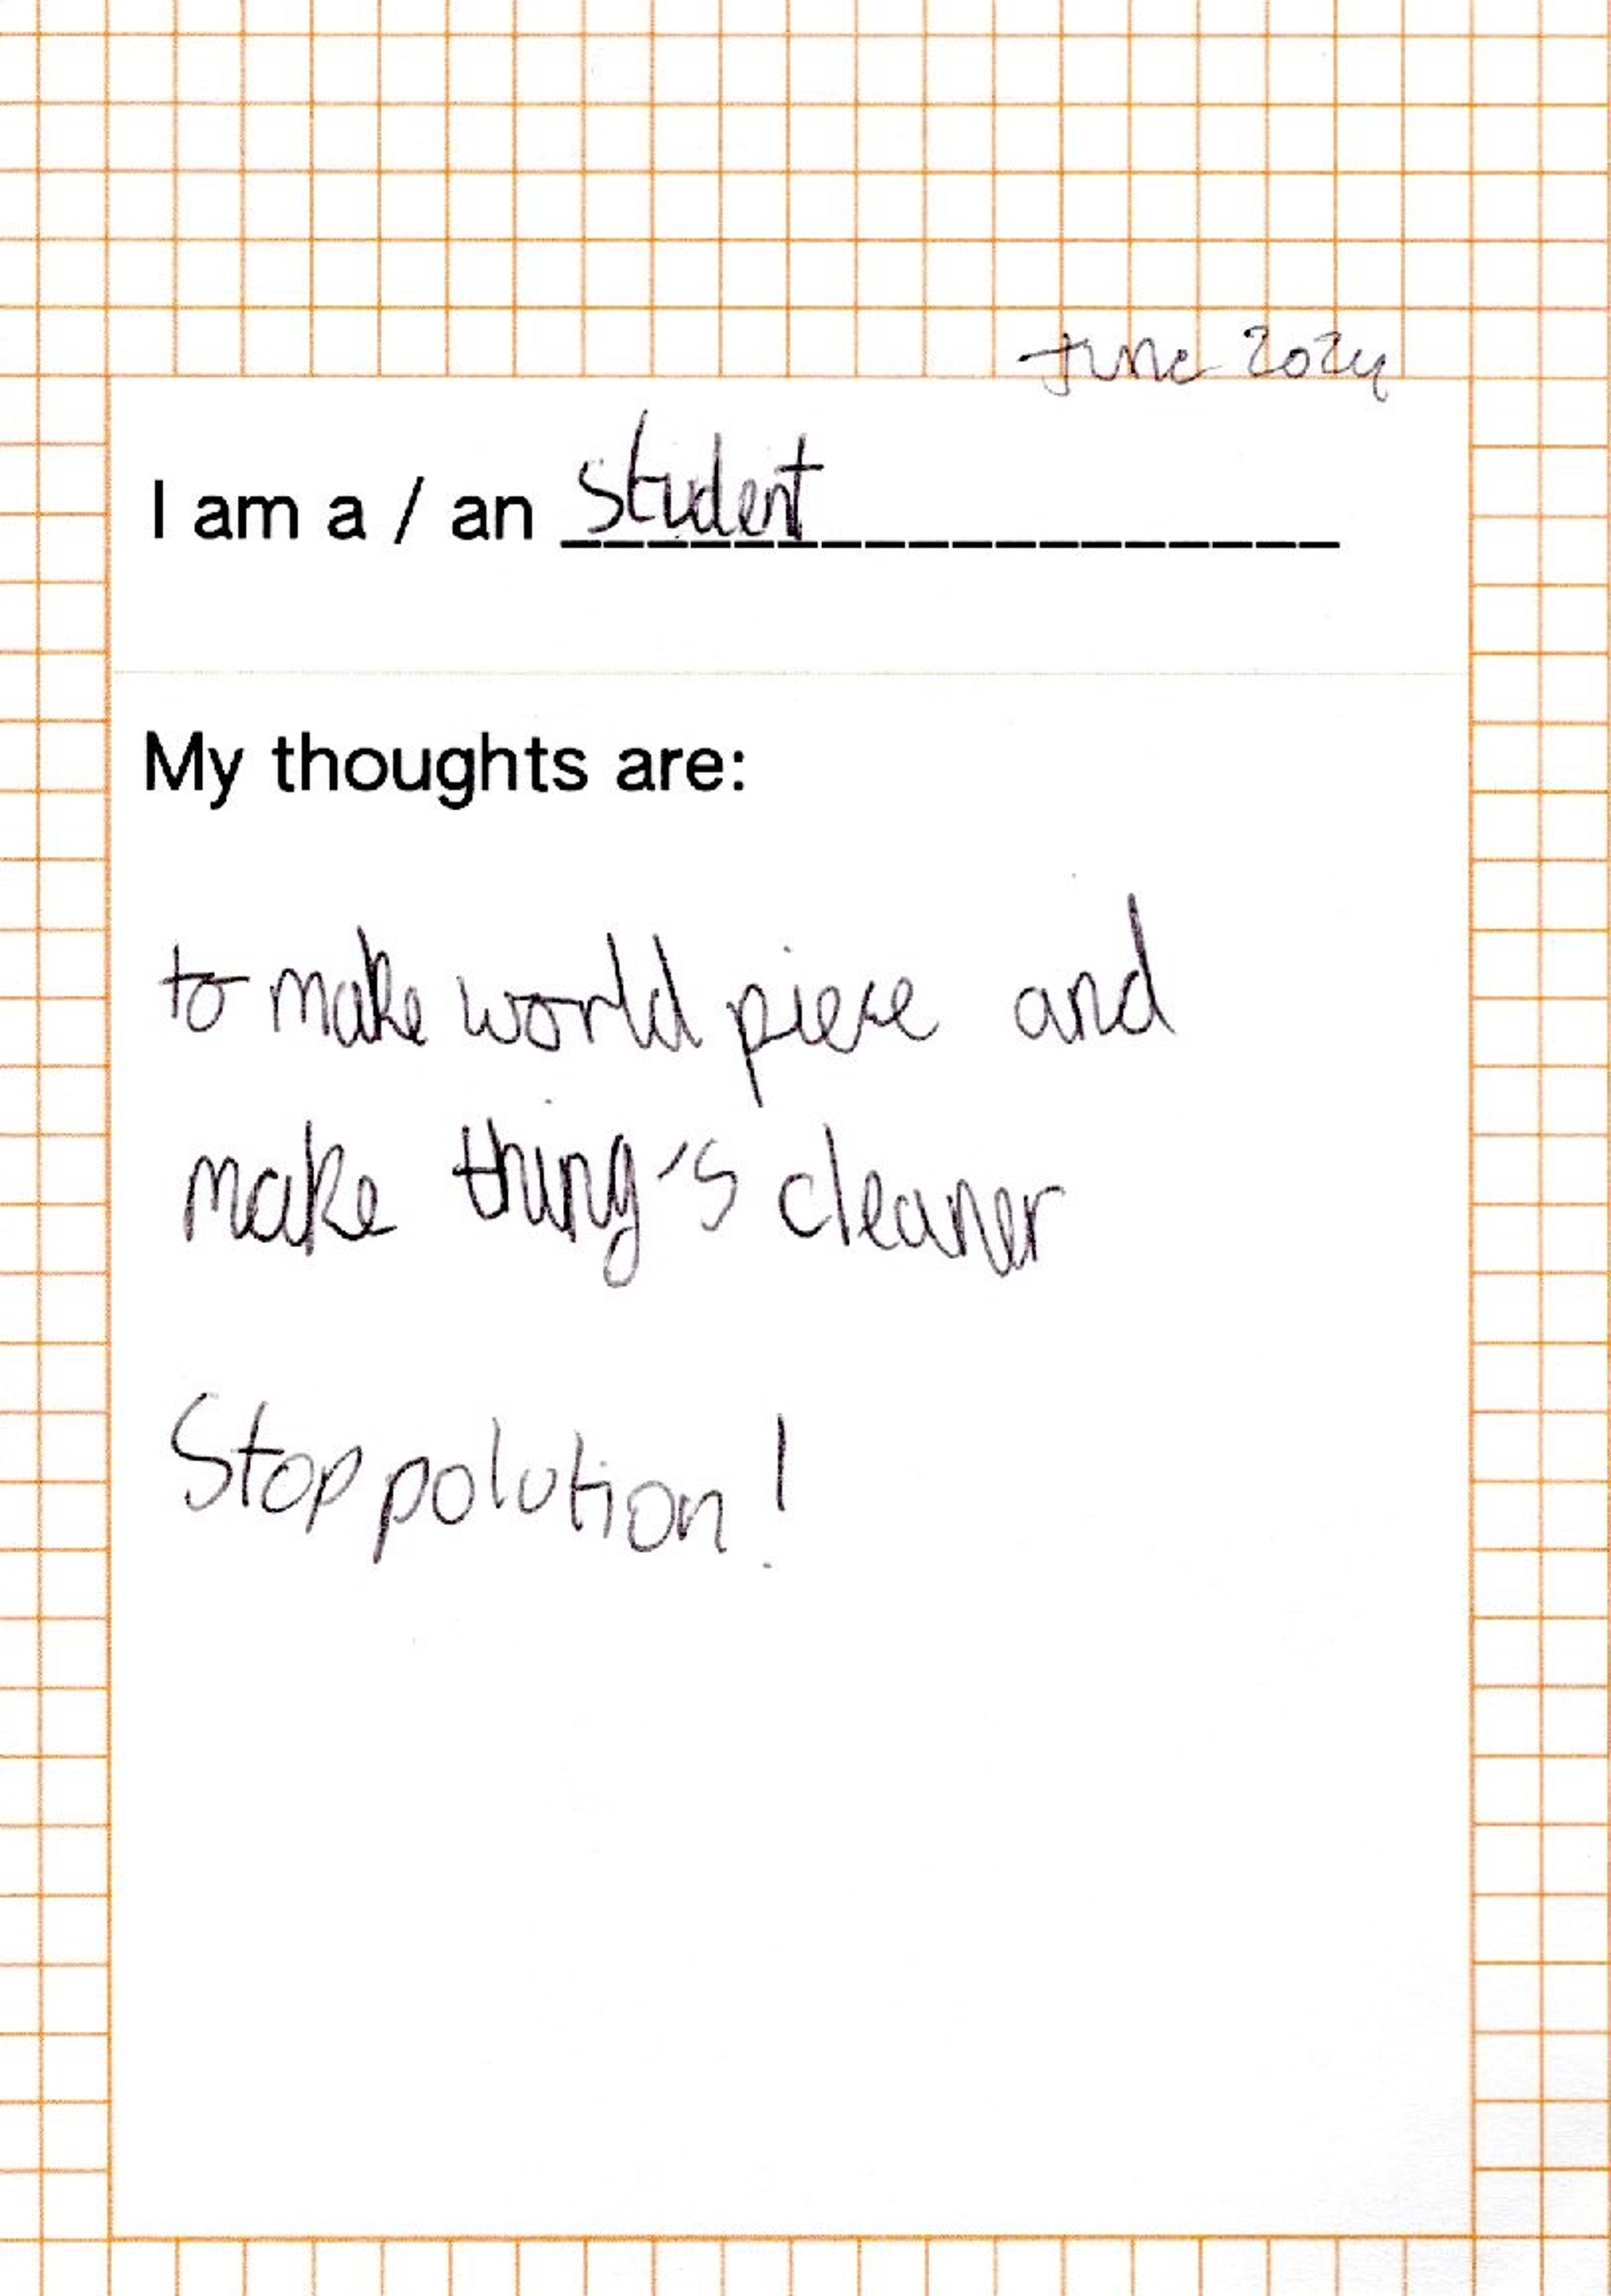 June 2024
I am a / an student
My thoughts are:
to make world piece and
make thing's cleaner
Stop polution!